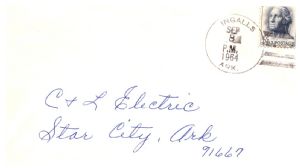 INGALLS
SEP
8
P.M.
1964
ARK.
C & L Electric
Star City, Ark
71667